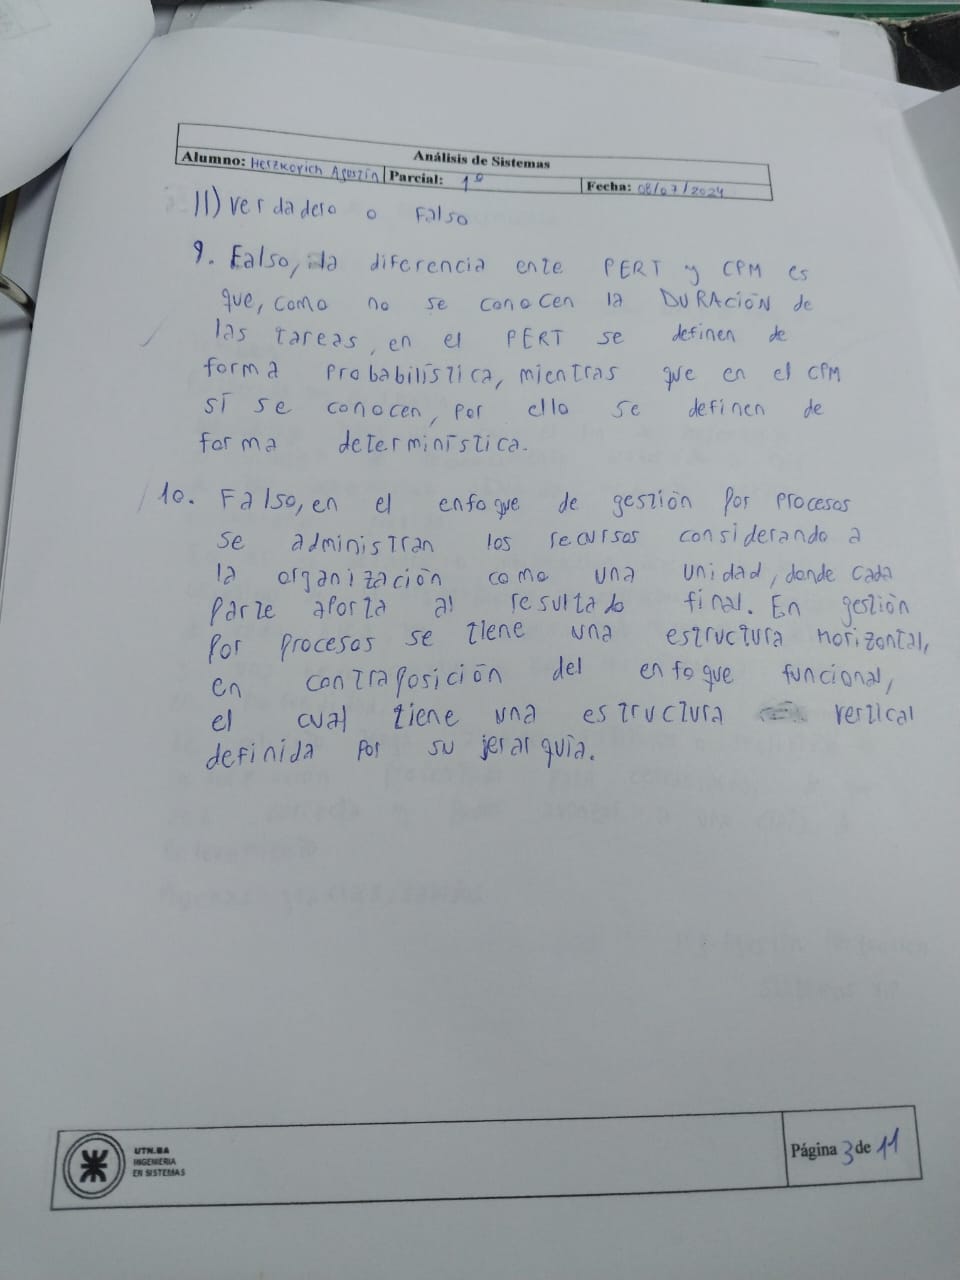 Análisis de Sistemas
Alumno: Heszkovich Agustín Parcial: 1º Fecha: 08/07/2024
II) Verdadero o Falso
9. Falso, la diferencia ente PERT y CPM es
que, como no se conocen la DURACIÓN de
las tareas, en el PERT se definen de
forma probabilística, mientras que en el CPM
sí se conocen, por ello se definen de
forma determinística.
10. Falso, en el enfoque de gestión por procesos
se administran los recursos considerando a
la organización como una unidad, donde cada
parte aporta al resultado final. En gestión
por procesos se tiene una estructura horizontal,
en contraposición del enfoque funcional,
el cual tiene una estructura vertical
definida por su jerarquía.
UTN.BA
INGENIERIA
EN SISTEMAS
Página 3 de 11